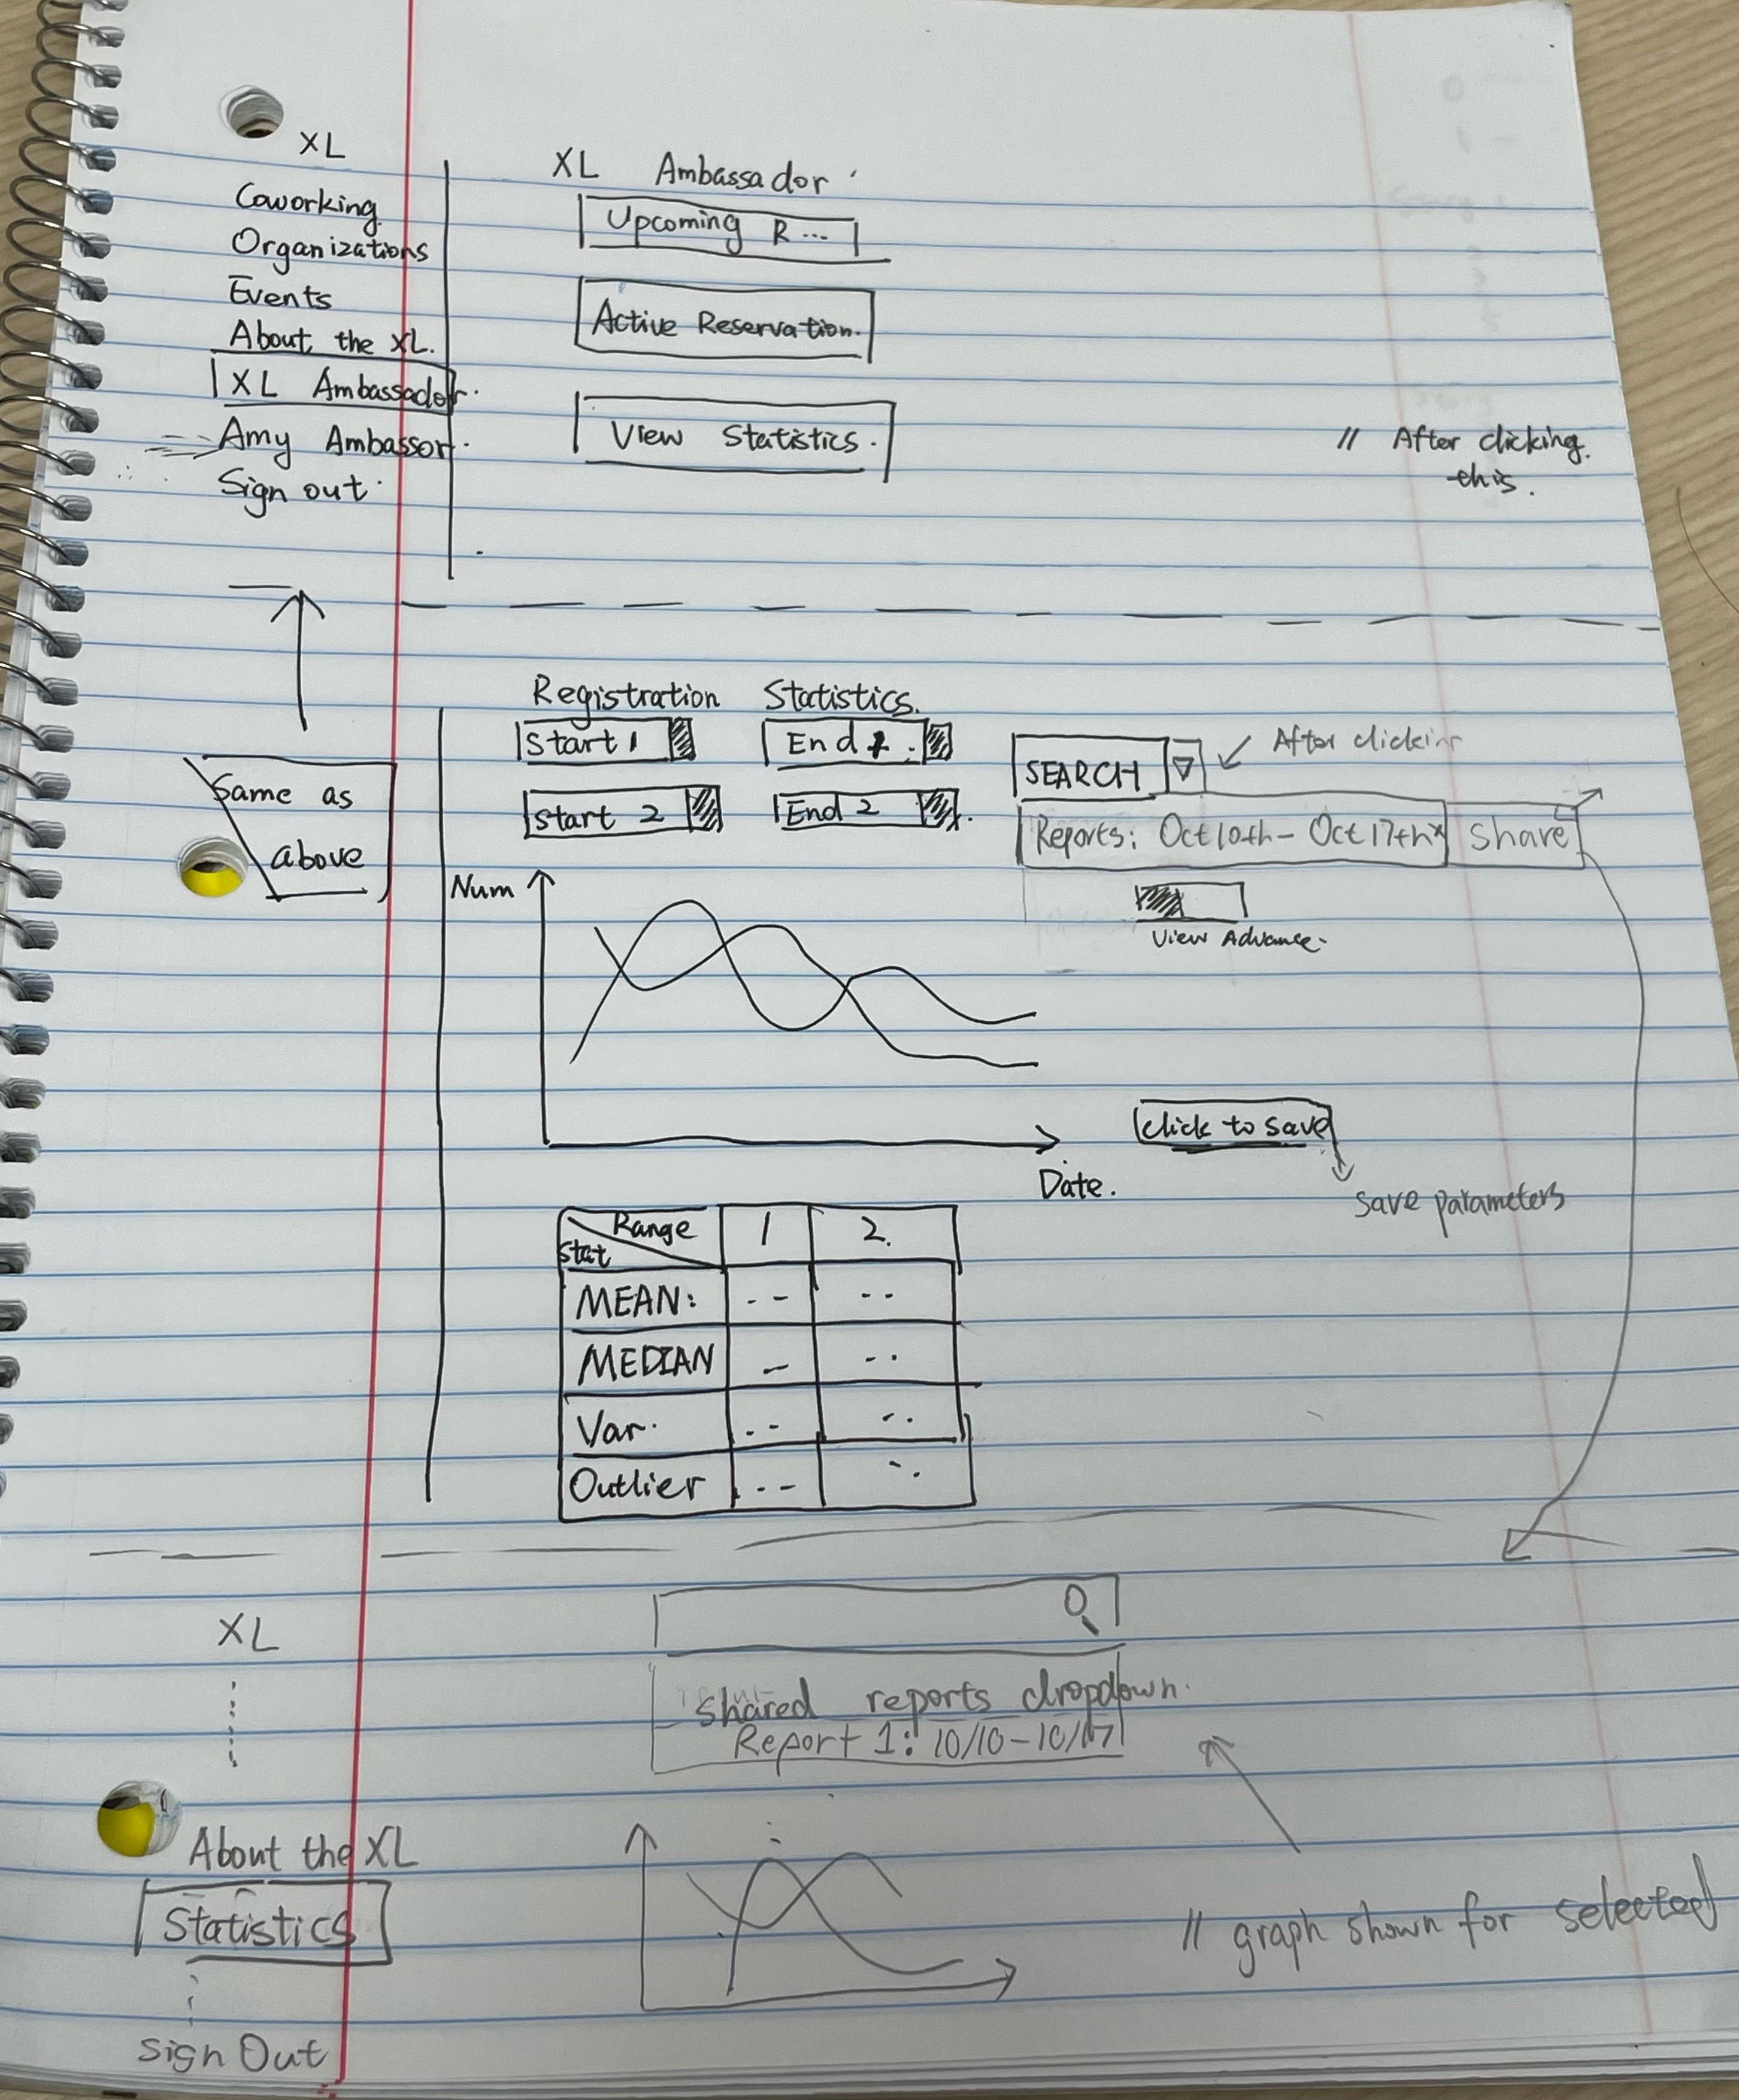 XL
Coworking
Organizations
Events
About the XL.
XL Ambassador.
Amy Ambassor.
Sign out.
XL Ambassador
Upcoming R...
Active Reservation.
View Statistics.
// After clicking.
this.
Same as
above
Registration Statistics.
Start 1
End 1.
SEARCH
After clicking
Start 2
End 2
Reports: Oct 10th - Oct 17th
Share
View Advance.
Num
Date.
Click to save
save parameters
Range 1 2.
Stat
MEAN: -- --
MEDIAN - --
Var. -- --
Outlier -- --
XL
shared reports dropdown.
Report 1: 10/10-10/17
About the XL
Statistics
Sign Out
// graph shown for selected